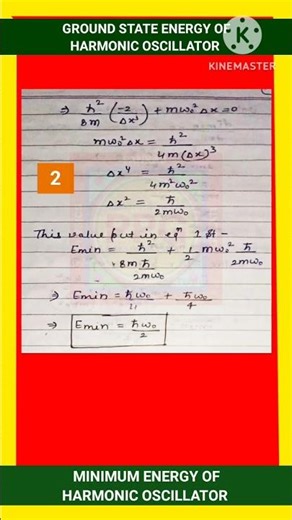 GROUND STATE ENERGY OF
HARMONIC OSCILLATOR
K
KINEMASTER
⇒ ħ²/8m (-2/Δx³) + mω₀²Δx = 0
mω₀²Δx = ħ²/4m(Δx)³
2
Δx⁴ = ħ²/4m²ω₀²
Δx² = ħ/2mω₀
This value put in eqⁿ 1st-
Emin = ħ²/(8mħ/2mω₀) + 1/2 mω₀² ħ/2mω₀
⇒ Emin = ħω₀/4 + ħω₀/4
⇒ Emin = ħω₀/2
MINIMUM ENERGY OF
HARMONIC OSCILLATOR